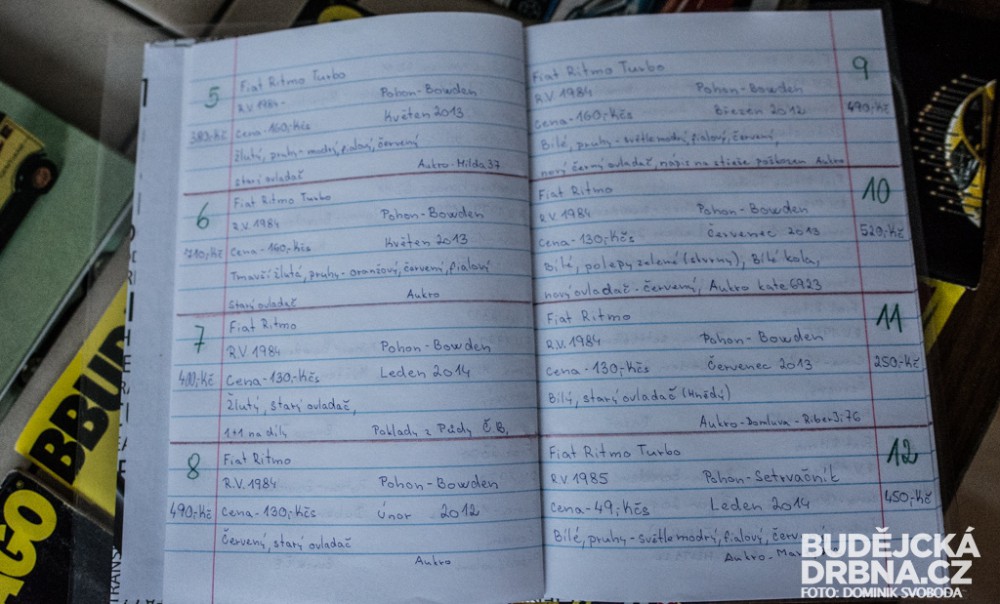 5
Fiat Ritmo Turbo
R.V. 1984 Pohon-Bowden
380,-Kč Cena-160,-Kčs Květen 2013
Žlutý, pruhy-modrý, fialový, červený
starý ovladač Aukro-Milda 37
6
Fiat Ritmo Turbo
R.V. 1984 Pohon-Bowden
710,-Kč Cena-160,-Kčs Květen 2013
Tmavší žlutá, pruhy-oranžový, červený, fialový
starý ovladač Aukro
7
Fiat Ritmo
R.V. 1984 Pohon-Bowden
400,-Kč Cena-130,-Kčs Leden 2014
Žlutý, starý ovladač,
1+1 na díly Poklady z Půdy Č.B,
8
Fiat Ritmo
R.V. 1984 Pohon-Bowden
490,-Kč Cena-130,-Kčs Únor 2012
Červený, starý ovladač
Aukro
9
Fiat Ritmo Turbo
R.V 1984 Pohon-Bowden
Cena-160,-Kčs Březen 2012 490,-Kč
Bílé, pruhy-světlemodrý, fialový, červený,
nový černý ovladač, nápis na střeše poškozen Aukro
10
Fiat Ritmo
R.V 1984 Pohon-Bowden
Cena-130,-Kčs Červenec 2013 520,-Kč
Bílé, polepy zelené (skvrny), Bílé kola,
nový ovladač-červený, Aukro kate6923
11
Fiat Ritmo
R.V. 1984 Pohon-Bowden
Cena-130,-Kčs Červenec 2013 250,-Kč
Bílý, starý ovladač (Hnědý)
Aukro-Domluva-Riber3i76
12
Fiat Ritmo Turbo
R.V 1985 Pohon-Setrvačník
Cena-49,-Kčs Leden 2014 450,-Kč
Bílé, pruhy-světlemodrý, fialový,
Aukro-
BUDĚJCKÁ
DRBNA.CZ
FOTO: DOMINIK SVOBODA